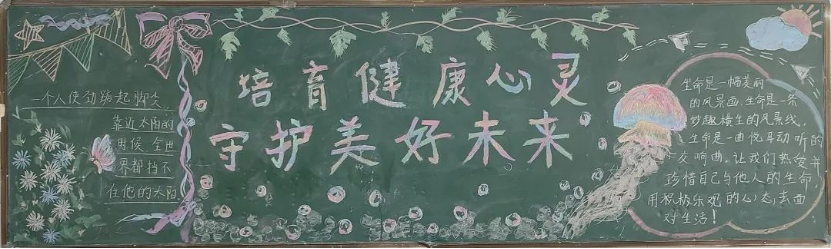 培育健康心灵
守护美好未来
一个人使劲踮起脚尖
靠近太阳的
时候全世
界都挡不
住他的太阳
生命是一幅美丽
的风景画,生命是一条
妙趣横生的风景线,
生命是一曲悦耳动听的
交响曲,让我们热爱并
珍惜自己与他人的生命,
用积极乐观的心态去面
对生活!